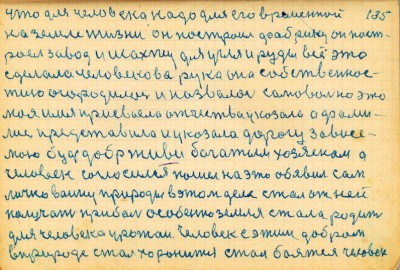 что для человека надо для его временной 135
на земле жизни он построил фабрику он пост-
роел завод и шахту для угля и руды всё это
сделала человекова рука она собственнос-
тию огородилась и назвалася самовольно это
моя имя присвоила отчества указала а фами-
лию представила и указала дорогу завосе-
мою будь добр живи богатым хозяенам а
человек согласился пошел на это обявил сам
лично войну природы в этом деле стал от ней
получать прибыл особенно земля стала родить
для человека урожай. Человек с этим добром
в природе стал хоронится стал боятся человек